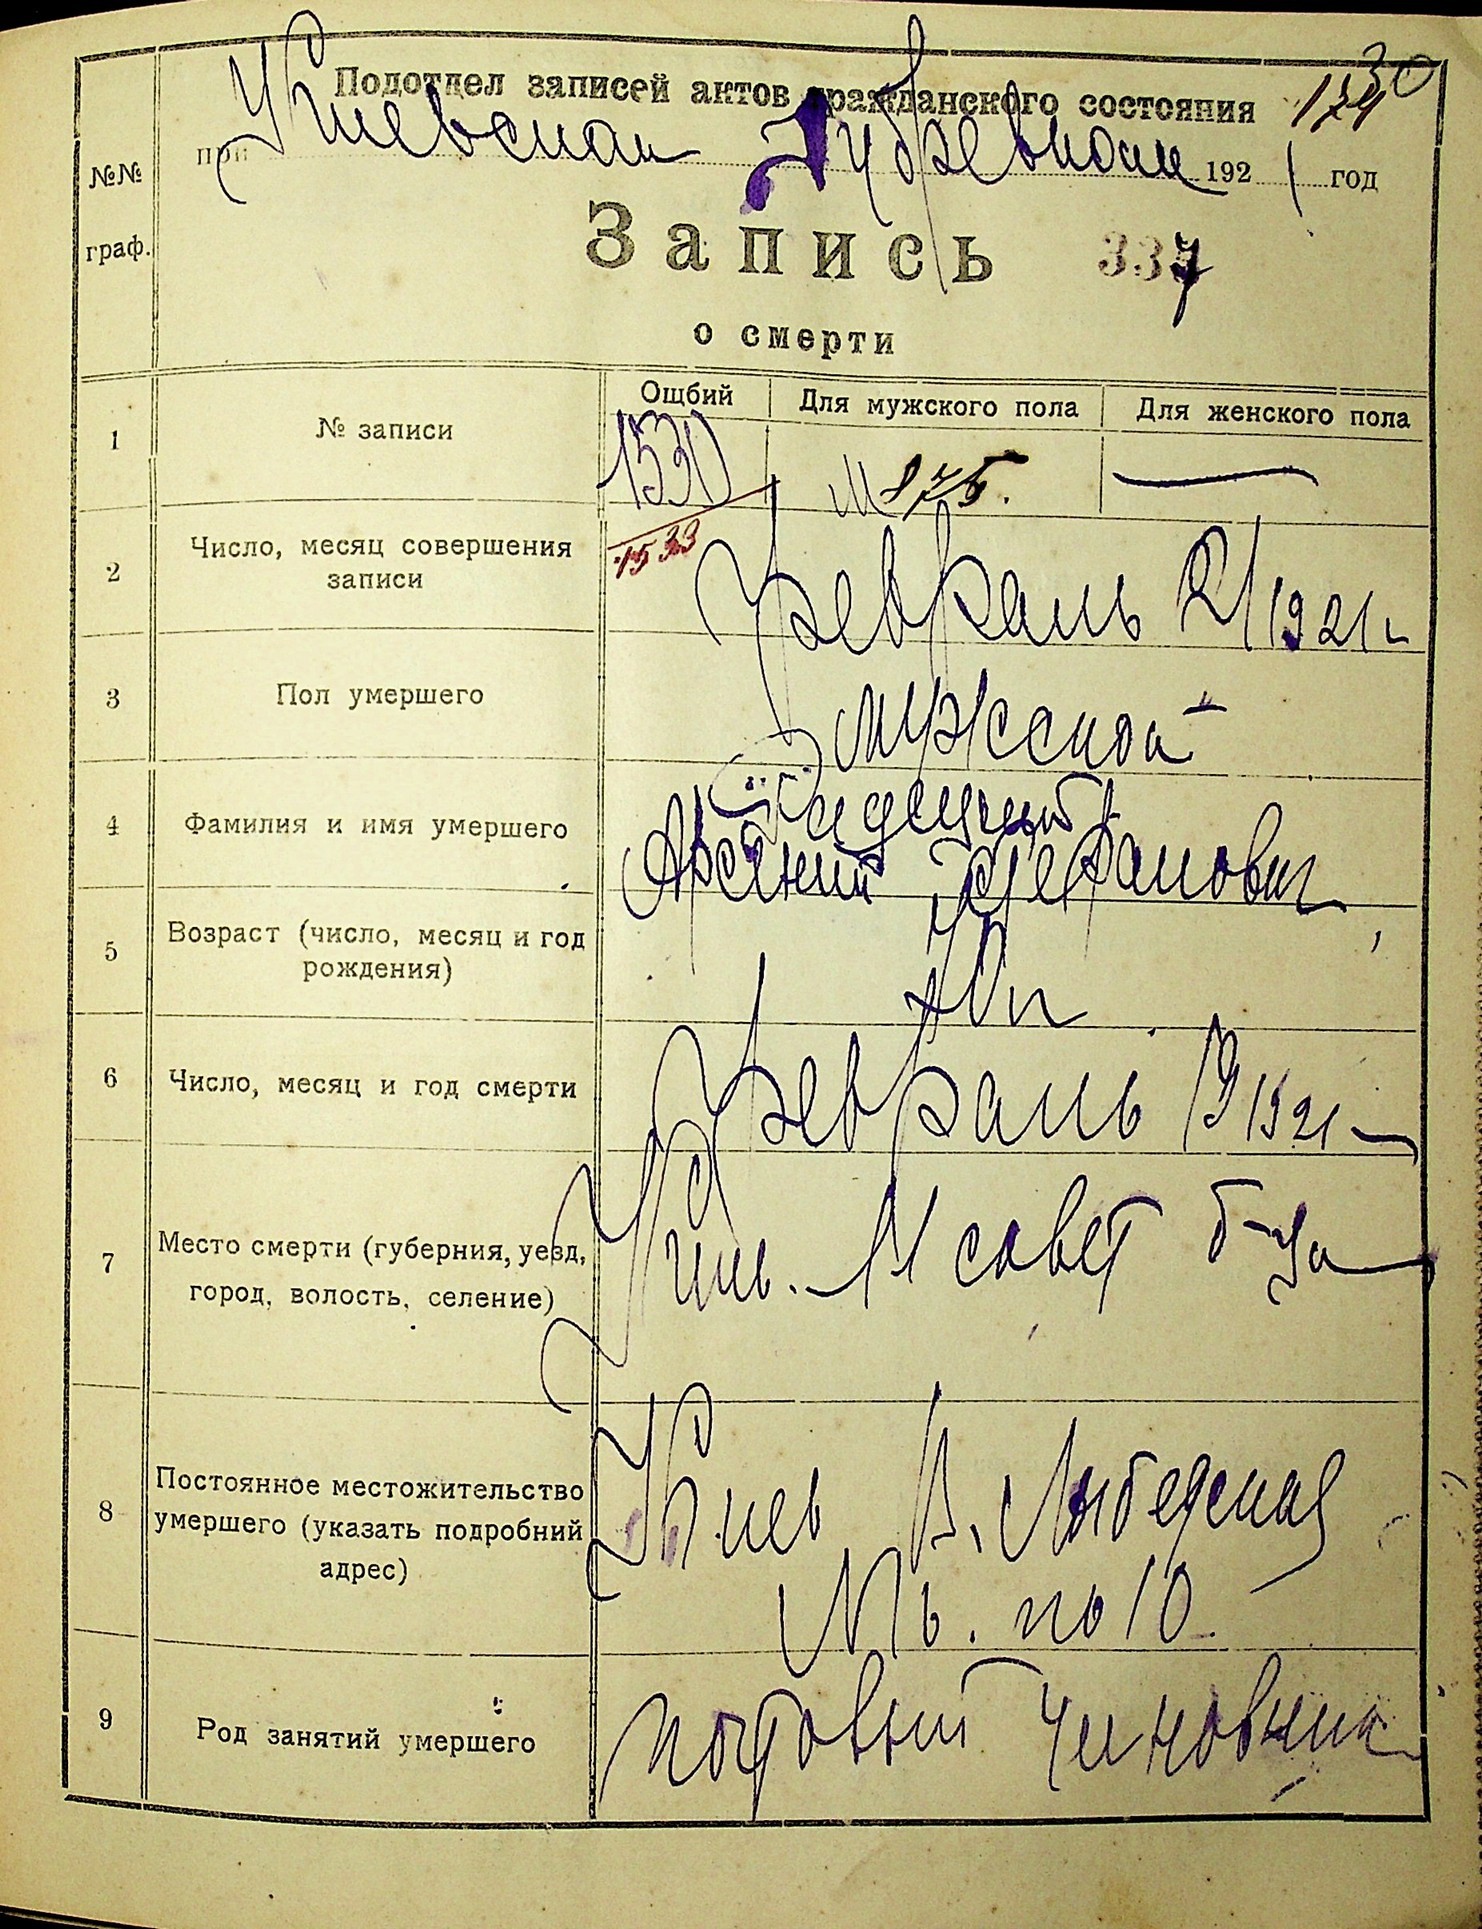 Подотдел записей актов гражданского состояния
при Киевском Губревкоме 1921 год
№№ граф.
Запись 337
о смерти
Ощбий Для мужского пола Для женского пола
1 № записи 1530 М 875.
1533
2 Число, месяц совершения записи Февраль 21 1921 г
3 Пол умершего мужской
4 Фамилия и имя умершего
Арсений Стефанович
5 Возраст (число, месяц и год рождения)
6 Число, месяц и год смерти Февраль 19 1921
7 Место смерти (губерния, уезд, город, волость, селение) совет б-ца
8 Постоянное местожительство умершего (указать подробний адрес) Киев В. Лыбедская
10
9 Род занятий умершего почтовый чиновник